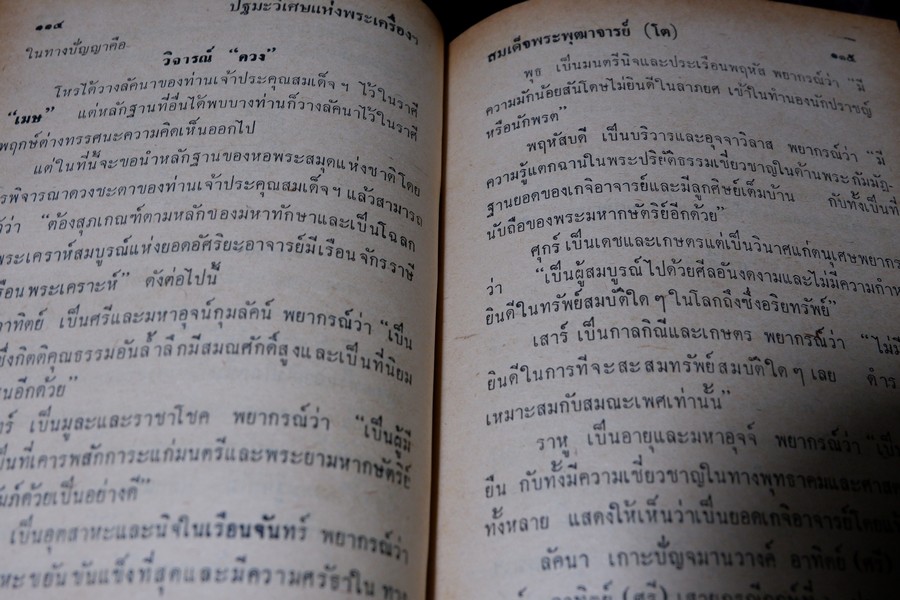 ๑๑๔
ปฐมะวิเศษแห่งพระเครื่องฯ
ในทางปัญญาคือ
วิจารณ์ “ดวง”
โหรได้วางลัคนาของท่านเจ้าประคุณสมเด็จฯ ไว้ในราศี
“เมษ” แต่หลักฐานที่อื่นได้พบบางท่านก็วางลัคนาไว้ในราศี
พฤกษ์ต่างทรรศนะความคิดเห็นออกไป
แต่ในที่นี้จะขอนำหลักฐานของหอพระสมุดแห่งชาติโดย
รพิจารณาดวงชะตาของท่านเจ้าประคุณสมเด็จฯ แล้วสามารถ
ว่า “ต้องสุภเกณฑ์ตามหลักของมหาทักษาและเป็นโฉลก
พระเคราห์สมบูรณ์แห่งยอดอัศิริยะอาจารย์มีเรือนจักรราษี
รือนพระเคราะห์” ดังต่อไปนี้
าทิตย์ เป็นศรีและมหาอุจน์กุมลัคน์ พยากรณ์ว่า “เป็น
ซึ่งกิตติคุณธรรมอันล้ำลึกมีสมณศักดิ์สูงและเป็นที่นิยม
นอีกด้วย”
ทร์ เป็นมูละและราชาโชค พยากรณ์ว่า “เป็นผู้มี
ป็นที่เคารพสักการะแก่มนตรีและพระยามหากษัตริย์
ภ์ด้วยเป็นอย่างดี”
เป็นอุตสาหะและนิจในเรือนจันทร์ พยากรณ์ว่า
หะขยันขันแข็งที่สุดและมีความศรัธาในทาง
สมเด็จพระพุฒาจารย์ (โต)
๑๑๕
พุธ เป็นมนตรีนิจและประเรือนพฤหัส พยากรณ์ว่า “มี
ความมักน้อยสันโดษไม่ยินดีในลาภยศ เข้าในทำนองนักปราชญ์
หรือนักพรต”
พฤหัสบดี เป็นบริวารและอุจจาวิลาส พยากรณ์ว่า “มี
ความรู้แตกฉานในพระปริยัติธรรมเชี่ยวชาญในด้านพระกัมมัฏ-
ฐานยอดของเกจิอาจารย์และมีลูกศิษย์เต็มบ้าน กับทั้งเป็นที่
นับถือของพระมหากษัตริย์อีกด้วย”
ศุกร์ เป็นเดชและเกษตรแต่เป็นวินาศแก่ตนุเศษพยากร
ว่า “เป็นผู้สมบูรณ์ไปด้วยศีลอันงดงามและไม่มีความกำห
ยินดีในทรัพย์สมบัติใดๆ ในโลกถึงซึ่งอริยทรัพย์”
เสาร์ เป็นกาลกิณีและเกษตร พยากรณ์ว่า “ไม่มี
ยินดีในการที่จะสะสมทรัพย์สมบัติใดๆ เลย ดำร
เหมาะสมกับสมณะเพศเท่านั้น”
ราหู เป็นอายุและมหาอุจจ์ พยากรณ์ว่า “เป็น
ยืน กับทั้งมีความเชี่ยวชาญในทางพุทธาคมและศาสต
ทั้งหลาย แสดงให้เห็นว่าเป็นยอดเกจิอาจารย์โดยแ
ลัคนา เกาะปัญจมานวางค์ อาทิตย์ (ศรี)
อาทิตย์ (ศรี)